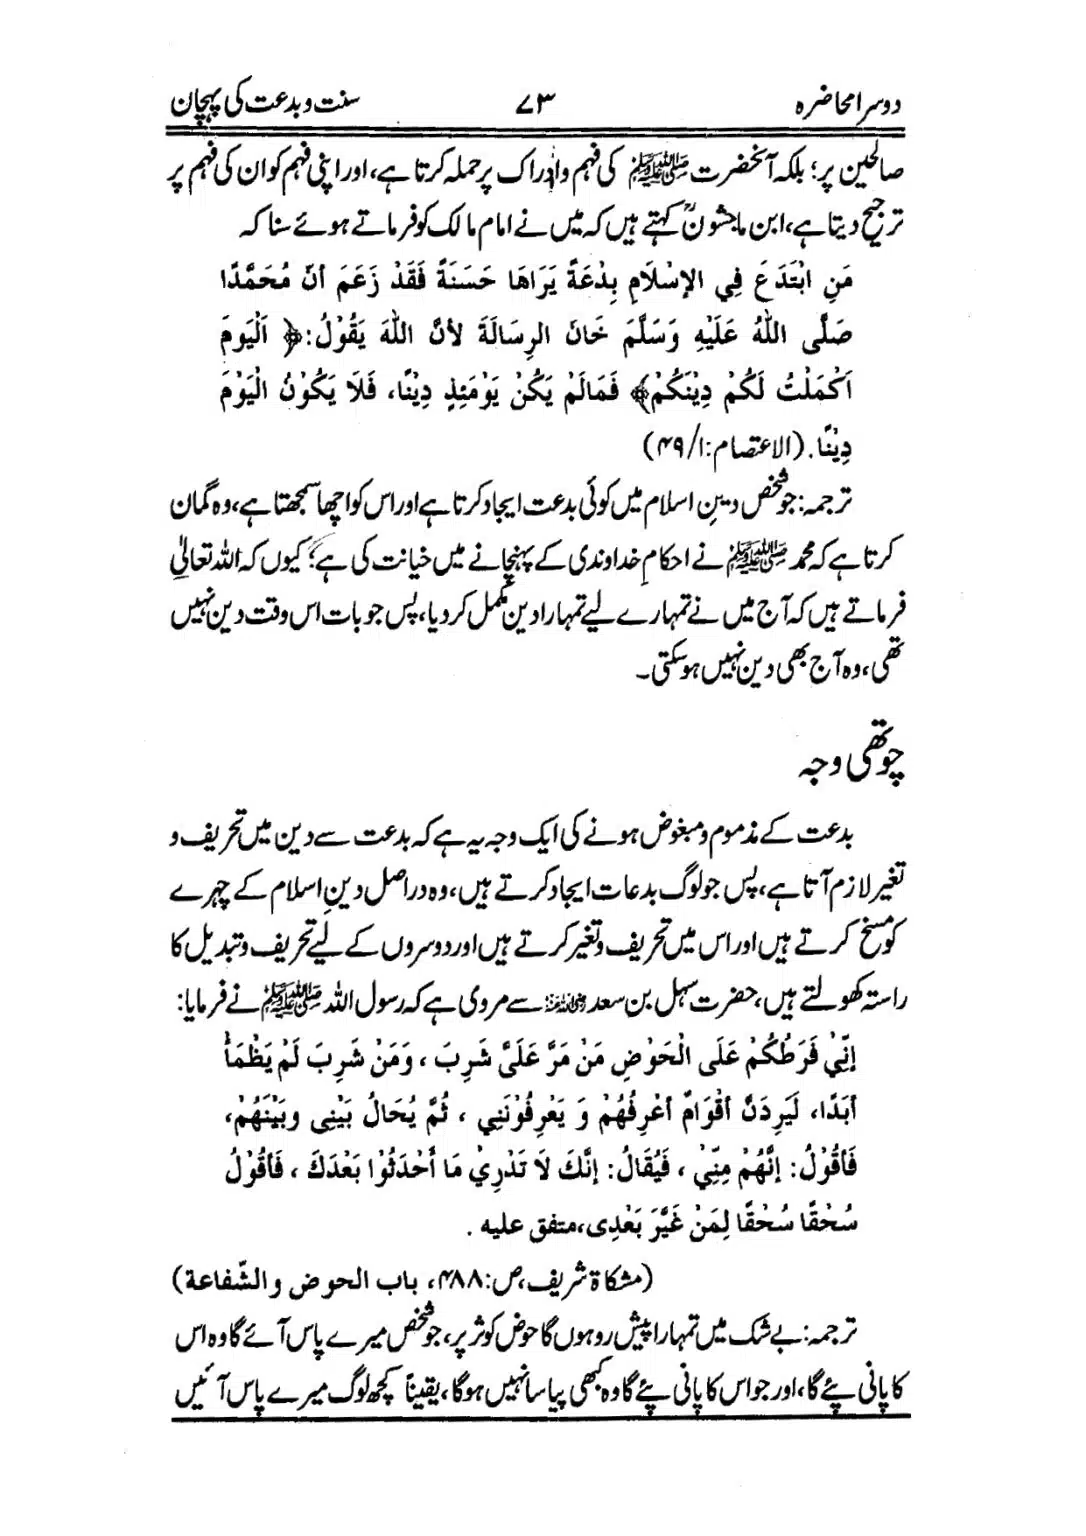 دوسرا محاضرہ ۷۳ سنت و بدعت کی پہچان
صالحین پر؛ بلکہ آنحضرت ﷺ کی فہم و ادراک پر حملہ کرتا ہے، اور اپنی فہم کو ان کی فہم پر
ترجیح دیتا ہے، ابن ماجشونؒ کہتے ہیں کہ میں نے امام مالک کو فرماتے ہوئے سنا کہ
مَنِ ابْتَدَعَ فِي الإسْلَامِ بِدْعَةً يَرَاهَا حَسَنَةً فَقَدْ زَعَمَ أنّ مُحَمَّدًا
صَلَّى اللهُ عَلَيْهِ وَسَلَّمَ خَانَ الرِسَالَةَ لأنَّ اللهَ يَقُوْلُ:﴿ اَلْيَومَ
اَكْمَلْتُ لَكُمْ دِيْنَكُمْ﴾ فَمَالَمْ يَكُنْ يَوْمَئِذٍ دِيْنًا، فَلَا يَكُوْنُ الْيَوْمَ
دِيْنًا. (الاعتصام:۱/۴۹)
ترجمہ: جو شخص دینِ اسلام میں کوئی بدعت ایجاد کرتا ہے اور اس کو اچھا سمجھتا ہے، وہ گمان
کرتا ہے کہ محمد ﷺ نے احکامِ خداوندی کے پہنچانے میں خیانت کی ہے؛ کیوں کہ اللہ تعالیٰ
فرماتے ہیں کہ آج میں نے تمہارے لیے تمہارا دین مکمل کر دیا، پس جو بات اس وقت دین نہیں
تھی، وہ آج بھی دین نہیں ہو سکتی۔
چوتھی وجہ
بدعت کے مذموم و مبغوض ہونے کی ایک وجہ یہ ہے کہ بدعت سے دین میں تحریف و
تغیر لازم آتا ہے، پس جو لوگ بدعات ایجاد کرتے ہیں، وہ دراصل دینِ اسلام کے چہرے
کو مسخ کرتے ہیں اور اس میں تحریف و تغیر کرتے ہیں اور دوسروں کے لیے تحریف و تبدیل کا
راستہ کھولتے ہیں، حضرت سہل بن سعد رضی اللہ عنہ سے مروی ہے کہ رسول اللہ ﷺ نے فرمایا:
إنِّيْ فَرَطُكُمْ عَلَى الْحَوْضِ مَنْ مَرَّ عَلَيَّ شَرِبَ ، وَمَنْ شَرِبَ لَمْ يَظْمَأْ
أبَدًا، لَيَرِدَنَّ أقْوَامٌ أعْرِفُهُمْ وَ يَعْرِفُوْنَنِي ، ثُمَّ يُحَالُ بَيْنِى وبَيْنَهُمْ،
فَأقُوْلُ: إنَّهُمْ مِنِّيْ ، فَيُقَالُ: إنَّكَ لاَ تَدْرِيْ مَا أَحْدَثُوا بَعْدَكَ ، فَأقُوْلُ
سُحْقًا سُحْقًا لِمَنْ غَيَّرَ بَعْدِى،متفق عليه .
(مشکاۃ شریف،ص:۴۸۸، باب الحوض والشّفاعة)
ترجمہ: بے شک میں تمہارا پیش رو ہوں گا حوض کوثر پر، جو شخص میرے پاس آئے گا وہ اس
کا پانی پئے گا، اور جو اس کا پانی پئے گا وہ کبھی پیاسا نہیں ہوگا، یقیناً کچھ لوگ میرے پاس آئیں